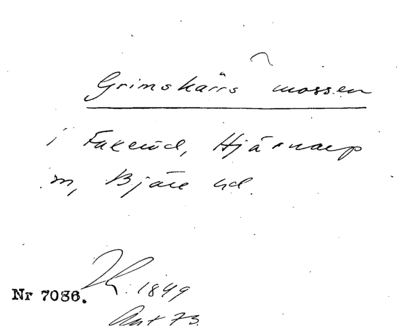 Grimskärrs mossen
i Fakeröd, Hjärnarp
sn, Bjäre hd.
Nr 7086. 1849
Ant 73